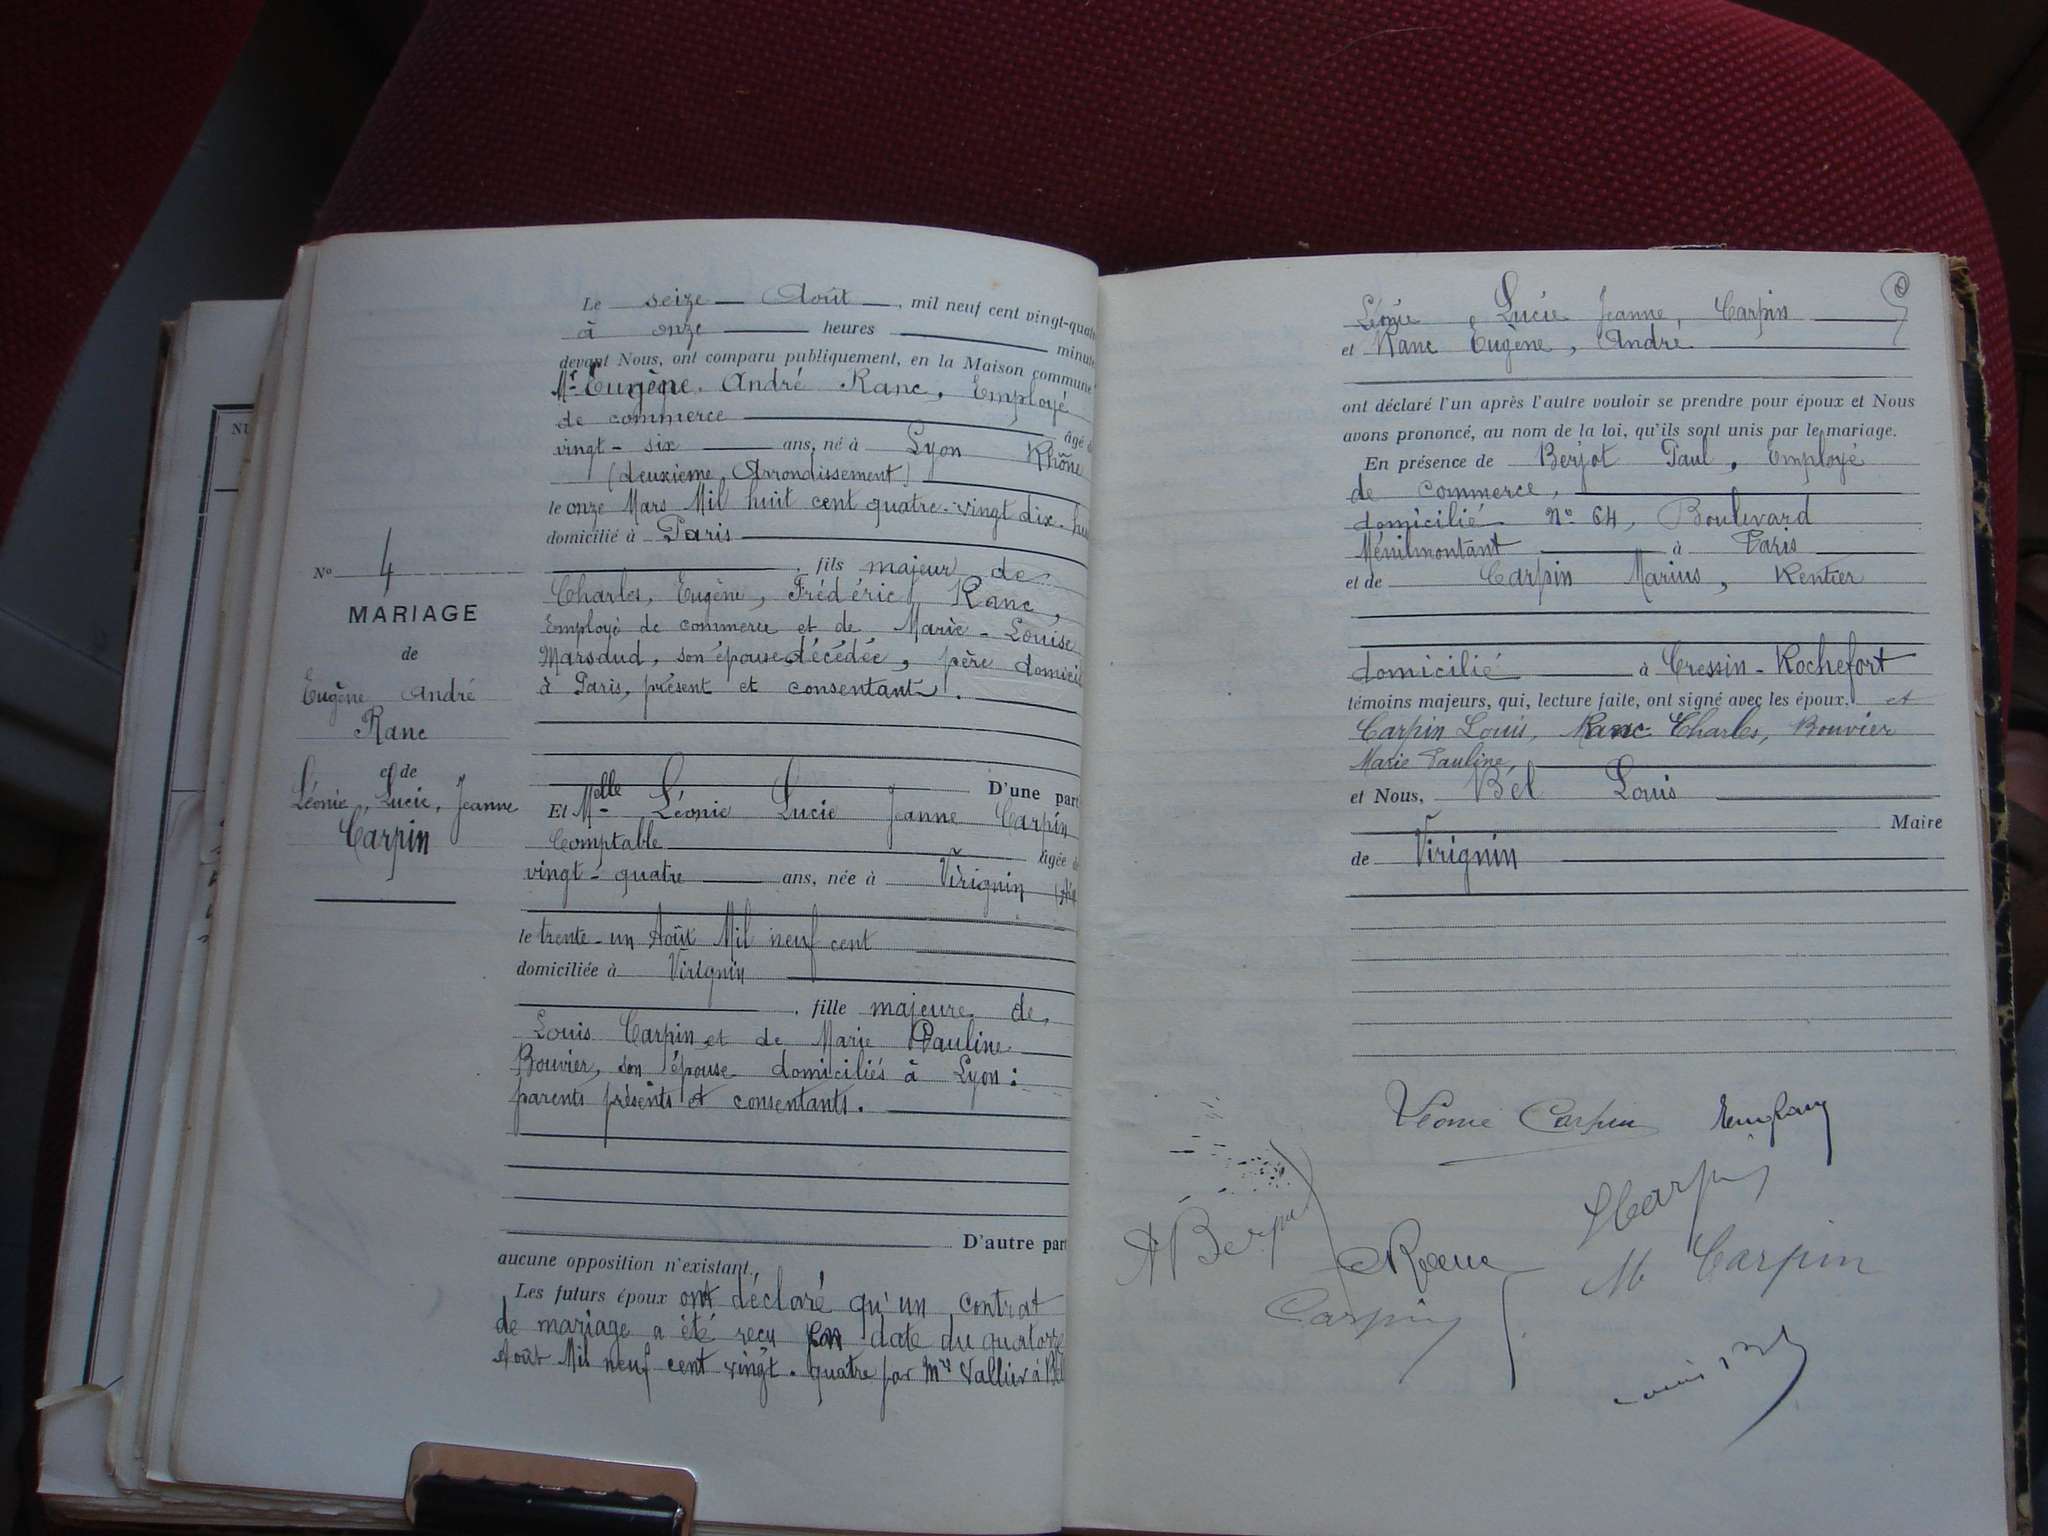 N° 4
MARIAGE
de
Eugène André
Ranc
et de
Léonie, Lucie, Jeanne
Carpin
Le seize Août, mil neuf cent vingt-quatre
à onze heures minutes
devant Nous, ont comparu publiquement, en la Maison commune
Mr Eugène André Ranc, Employé
de commerce âgé de
vingt-six ans, né à Lyon Rhône
(deuxième Arrondissement)
le onze Mars Mil huit cent quatre-vingt dix-hui
domicilié à Paris
, fils majeur de
Charles, Eugène, Frédéric Ranc,
Employé de commerce et de Marie-Louise
son épouse décédée, père domicil
à Paris, présent et consentant.
D'une part
Et Melle Léonie Lucie Jeanne Carpin
Comptable âgée de
vingt-quatre ans, née à Virignin (Ain
le trente-un Août Mil neuf cent
domiciliée à Virignin
, fille majeure de
Louis Carpin et de Marie Pauline
Bouvier, son épouse domiciliés à Lyon :
parents présents et consentants.
D'autre part
aucune opposition n'existant.
Les futurs époux ont déclaré qu'un contrat
de mariage a été reçu en date du quatorze
Août Mil neuf cent vingt-quatre par Me Vallier à Bel
Léonie, Lucie Jeanne, Carpin
et Ranc Eugène, André
ont déclaré l'un après l'autre vouloir se prendre pour époux et Nous
avons prononcé, au nom de la loi, qu'ils sont unis par le mariage.
En présence de Berjot Paul, Employé
de commerce,
domicilié N° 64, Boulevard
Ménilmontant à Paris
et de Carpin Marius, Rentier
domicilié à Cressin-Rochefort
témoins majeurs, qui, lecture faite, ont signé avec les époux, et
Carpin Louis, Ranc Charles, Bouvier
Marie Pauline,
et Nous, Bel Louis
Maire
de Virignin
Léonie Carpin
Carpin
Ranc
M Carpin
Carpin
Louis Bel